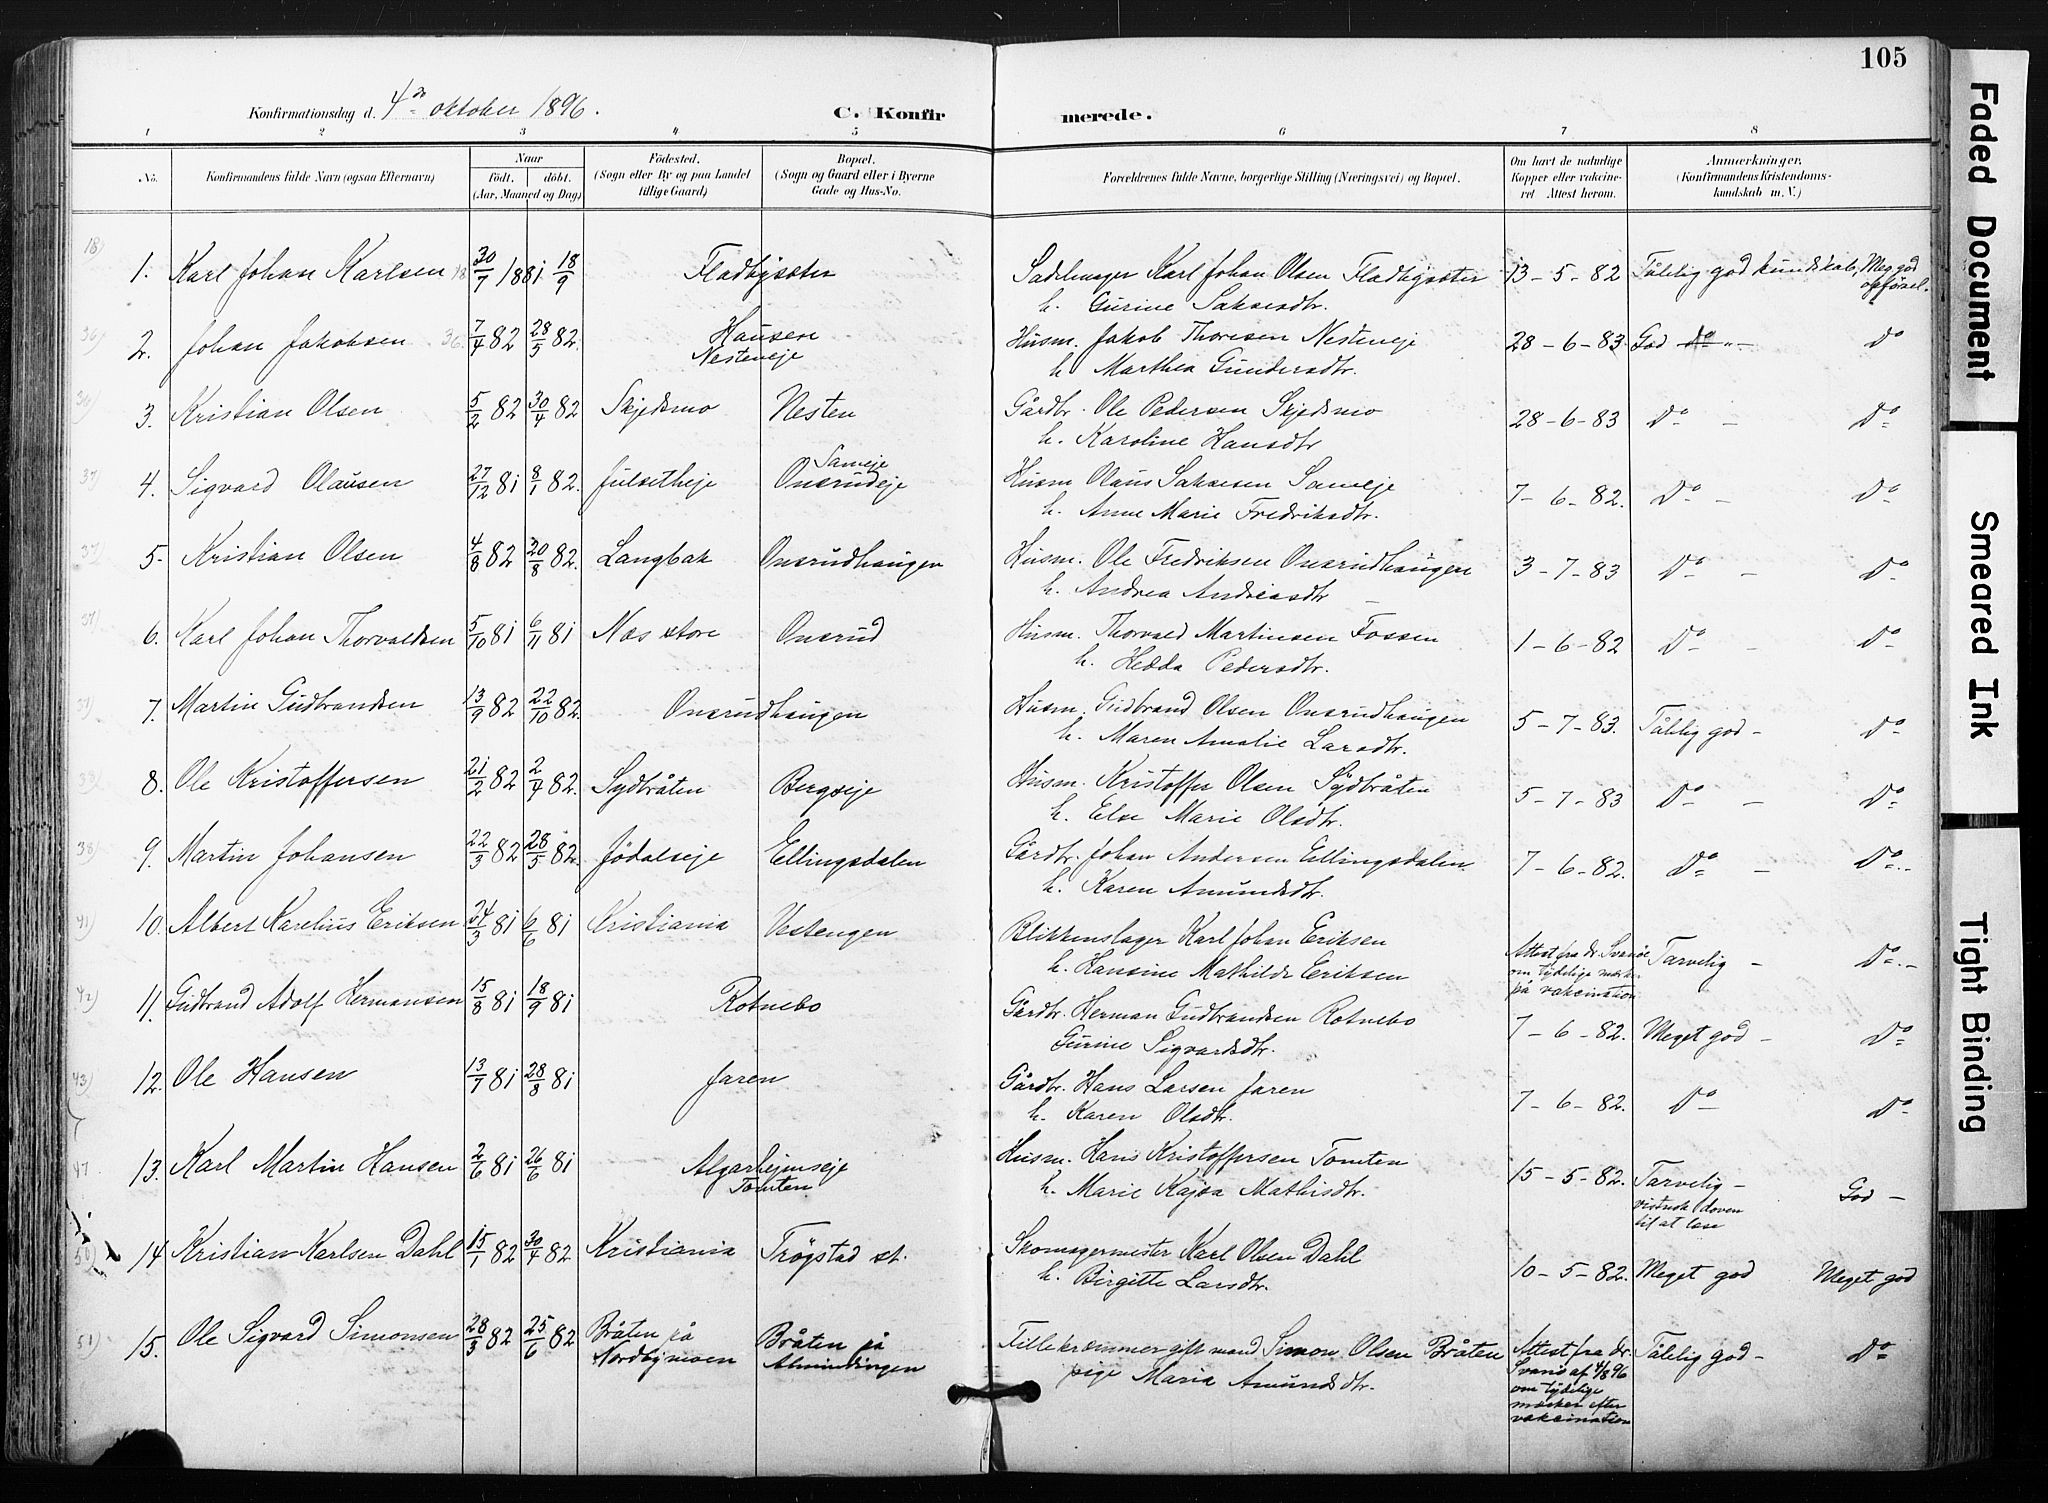 105
Konfirmationsdag d. 4de oktober 1896.
C. Konfirmerede.
1 2 3 4 5 6 7 8
No. Konfirmandens fulde Navn (ogsaa Efternavn) Naar født. døbt. (Aar, Maaned og Dag) Fødested. (Sogn eller By og paa Landet tillige Gaard) Bopæl. (Sogn og Gaard eller i Byerne Gade og Hus-No. Forældrenes fulde Navne, borgerlige Stilling (Næringsvei) og Bopæl. Om havt de naturlige Kopper eller vakcineret Attest herom. Anmærkninger. (Konfirmandens Kristendomskundskab m. V.)
18) 1. Karl Johan Karlsen 18 30/7 1881 18/9 Fladbysæter Sadelmager Karl Johan Olsen Fladbysæter 13-5-82 Tålelig god kundskab, Meg. god opførsel.
h. Gurine Saksesdtr.
36) 2. Johan Jakobsen 36. 7/4 82 28/5 82. Hausen Nesteneje Husm. Jakob Thoresen Nesteneje 28-6-83. God do - do
h. Marthea Gundersdtr.
36) 3. Kristian Olsen 5/2 82 30/4 82 Skjedsmo Nesten Gårdbr. Ole Pedersen Skjedsmo 28-6-83 Do - Do
h. Karoline Hansdtr
37) 4. Sigvard Olausen 27/12 81 8/1 82. Julsetheje Onsrudeje Husm Olaus Saksesen 7-6-82. Do - Do
h. Anne Marie Fredriksdtr.
37) 5. Kristian Olsen 4/8 82 20/8 82. Langbak Onsrudhaugen Husm. Ole Fredriksen Onsrudhaugen 3-7-83 Do - Do
h. Andrea Andreasdtr
37) 6. Karl Johan Thorvaldsen 5/10 81 6/11 81 Næs store Onsrud Husm. Thorvald Martinsen Fossen 1-6-82 Do - Do
h. Hedda Pedersdtr.
37) 7. Martin Gudbrandsen 13/9 82 22/10 82. Onsrudhaugen Husm. Gudbrand Olsen Onsrudhaugen 5-7-83. Tålelig god - Do
h. Maren Amalie Larsdtr.
8. Ole Kristoffersen 21/2 82 2/4 82. Sydbråten Bergseje Husm. Kristoffer Olsen Sydbråten 5-7-83 Do - Do
h. Else Marie Olsdtr.
38) 9. Martin Johansen 22/3 82 28/5 82. Jødalseje Ellingsdalen Gårdbr. Johan Andersen Ellingsdalen 7-6-82. Do - Do.-
h. Karen Amundsdtr.
41) 10. Albert Karelius Eriksen 24/3 81 6/6 81 Kristiania Vestengen Blikkenslager Karl Johan Eriksen Attest fra dr. Svanøe om tydelige mærker på vakcination Tarvelig - Do.-
h. Hansine Mathilde Eriksen
42) 11. Gudbrand Adolf Hermansen 15/8 81 18/9 81 Rotnebo Gårdbr. Herman Gudbrandsen Rotnebo 7-6-82. Meget god - Do
Gurine Sigvardsdtr.
43) 12. Ole Hansen 13/7 81 28/8 81 Jaren Gårdbr. Hans Larsen Jaren 7-6-82. Do - Do
h. Karen Olsdtr.
47 13. Karl Martin Hansen 2/6 81 26/6 81 Algarhejmseje Tomten Husm. Hans Kristoffersen Tomten 15-5-82. Tarvelig - doven til at læse God -
h. Marie Kajsa Mathisdtr.
50) 14 Kristian Karlsen Dahl 15/1 82 30/4 82 Kristiania Trøgstad st. Skomagermester Karl Olsen Dahl 10-5-82. Meget god Meget god
h. Birgitte Larsdtr.
51) 15. Ole Sigvard Simonsen 28/3 82 25/6 82 Bråten på Nordbymoen Bråten på Almindingen Fillekræmmer gift mand Simon Olsen Bråten Attest fra dr. Svanø af 4/8 96 om tydelige mærker efter vakcination Tålelig god - Do
pige Maria Amundsdtr.
Faded Document
Smeared Ink
Tight Binding